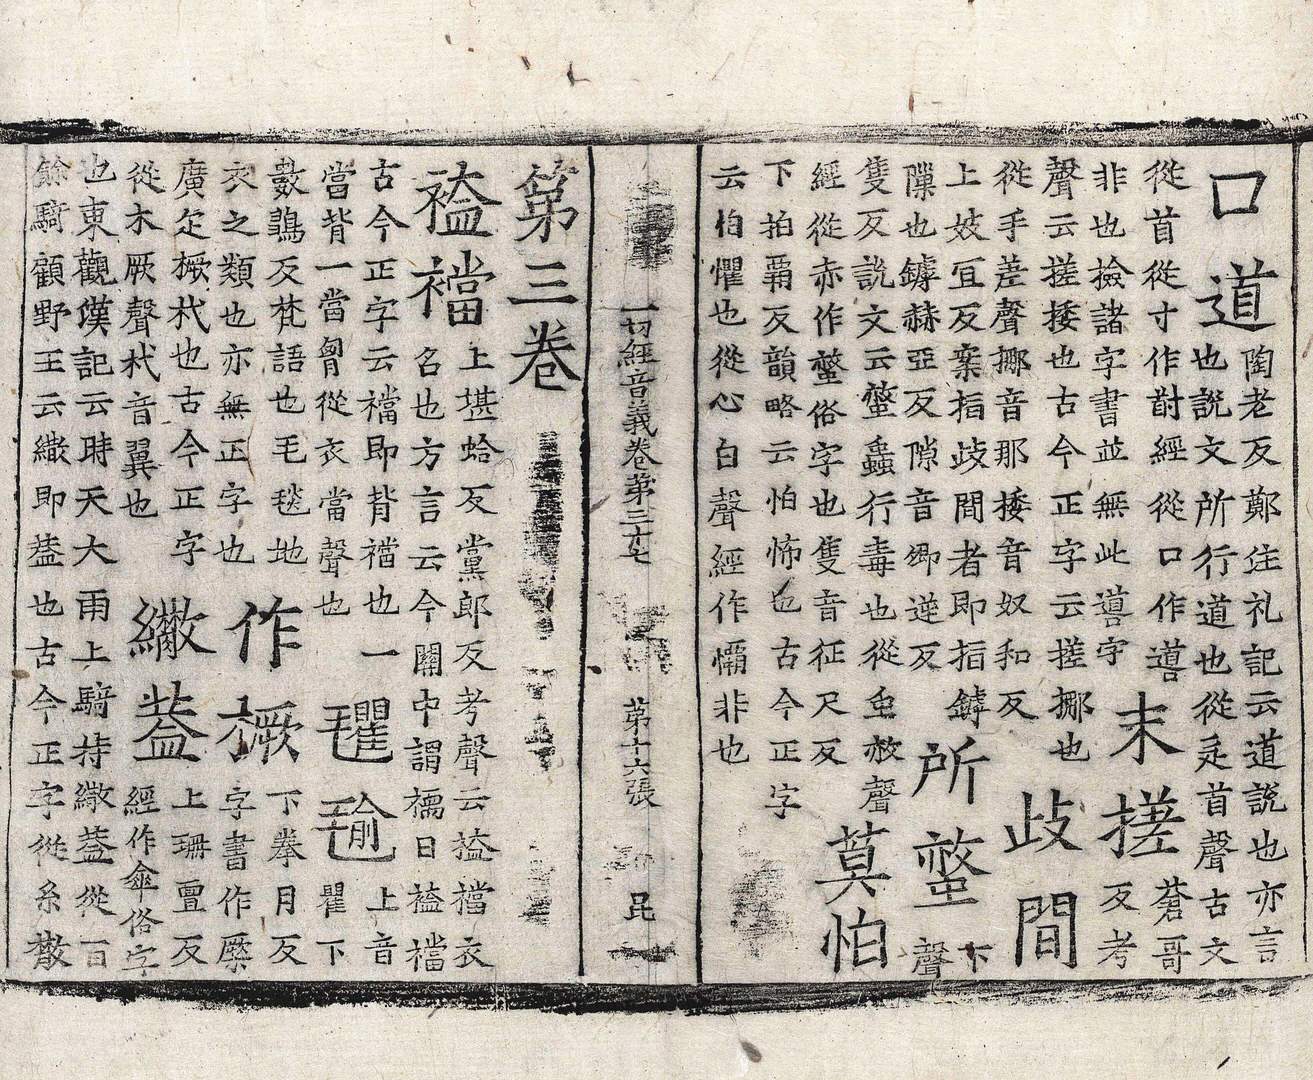 口道陶老反鄭注礼記云道說也亦言
也說文所行道也從辵首聲古文
從首從寸作䢭經從口作噵
非也撿諸字書並無此噵字
末搓蒼哥
反考
聲云搓捼也古今正字云搓挪也
從手差聲挪音那捼音奴和反
歧間
上妓宜反案指歧間者即指鏬
隟也鏬赫亞反隙音卿逆反
所螫下
聲
隻反說文云螫蟲行毒也從虫赦聲
經從赤作螫俗字也隻音征尺反
莫怕
下拍霸反韻略云怕怖也古今正字
云怕懼也從心白聲經作㦬非也
一切經音義卷第三十七 第十六張 昆
第三卷
𧛾襠上堪蛤反黨郎反考聲云𧛾襠衣
名也方言云今關中謂襦曰𧛾襠
古今正字云襠即背襠也一
當背一當胷從衣當聲也
氍毹上音
瞿下
數鶵反梵語也毛毯地
衣之類也亦無正字也
作橛下拳月反
字書作㕒
廣疋橛杙也古今正字
從木厥聲杙音翼也
繖蓋上珊亶反
經作傘俗字
也東觀漢記云時天大雨上騎持繖蓋從百
餘騎顧野王云繖即蓋也古今正字從糸散